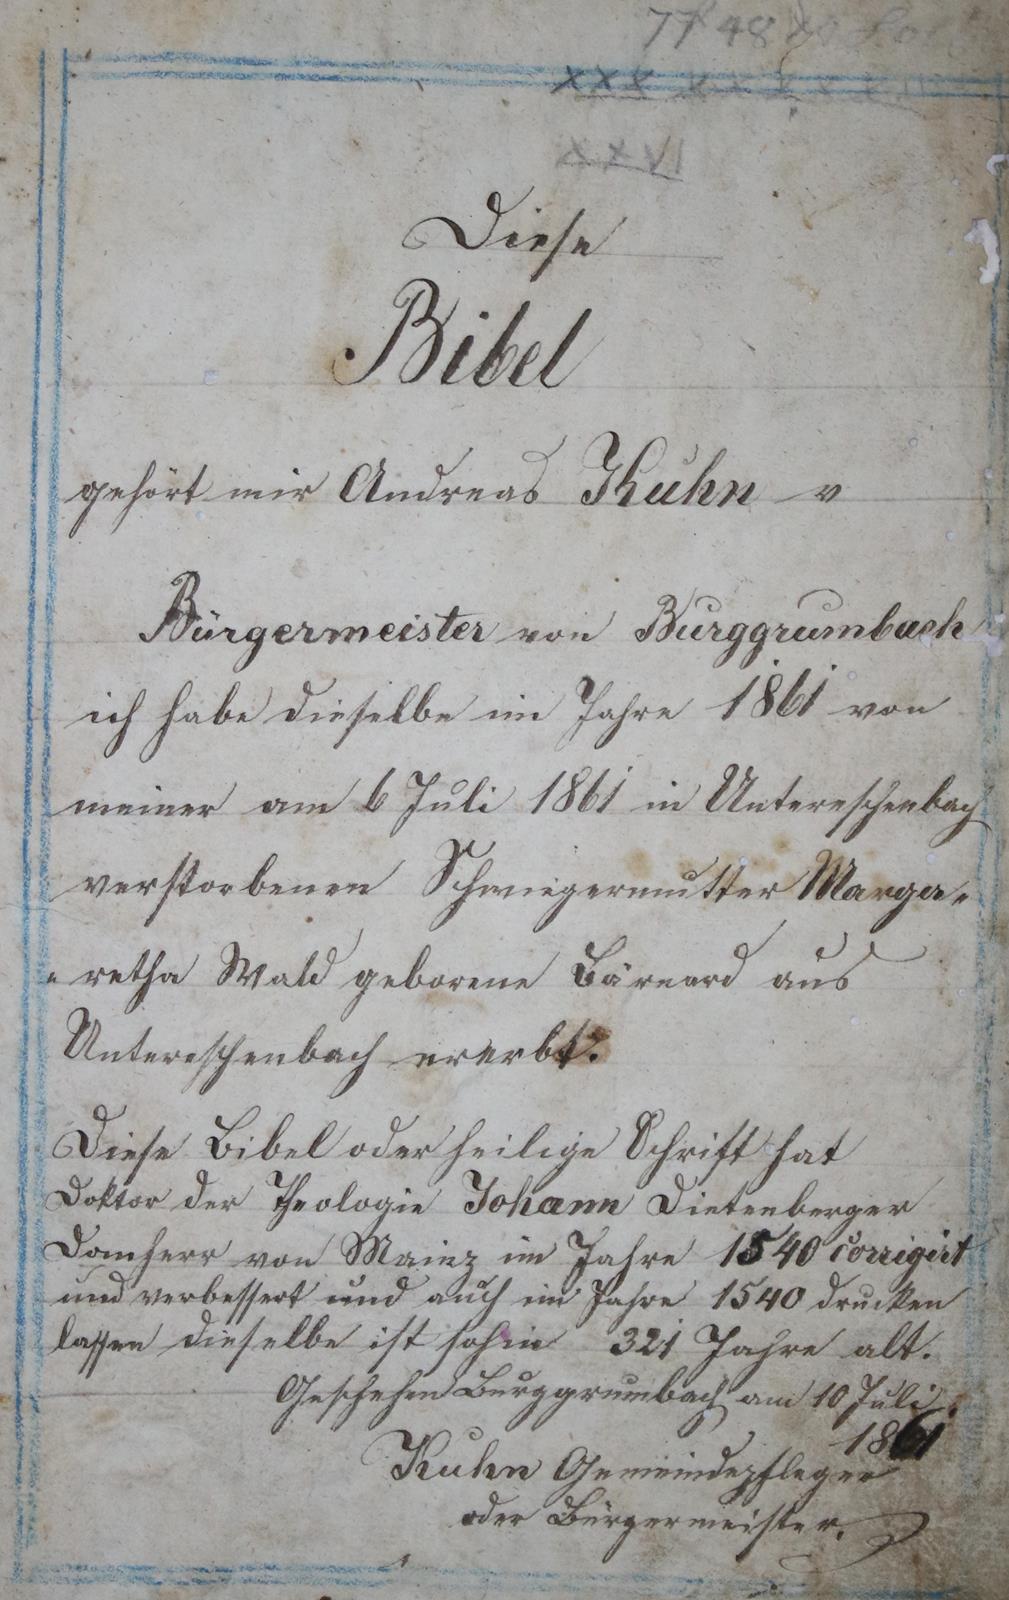 77 48
XXX
XXVI
Diese
Bibel
gehört mir Andreas Kuhn v
Bürgermeister von Burggrumbach
ich habe dieselbe im Jahre 1861 von
meiner am 6 Juli 1861 in Untereschenbach
verstorbenen Schwiegermutter Marga„
„retha Wald geborene Bärnard aus
Untereschenbach ererbt.
Diese Bibel oder heilige Schrift hat
Doktor der Theologie Johann Dietenberger
Domherr von Mainz im Jahre 1540 corrigirt
und verbessert und auch im Jahre 1540 drucken
lassen dieselbe ist sohin 321 Jahre alt.
Geschehen Burggrumbach am 10 Juli
1861
Kuhn Gemeindepfleger
oder Bürgermeister.